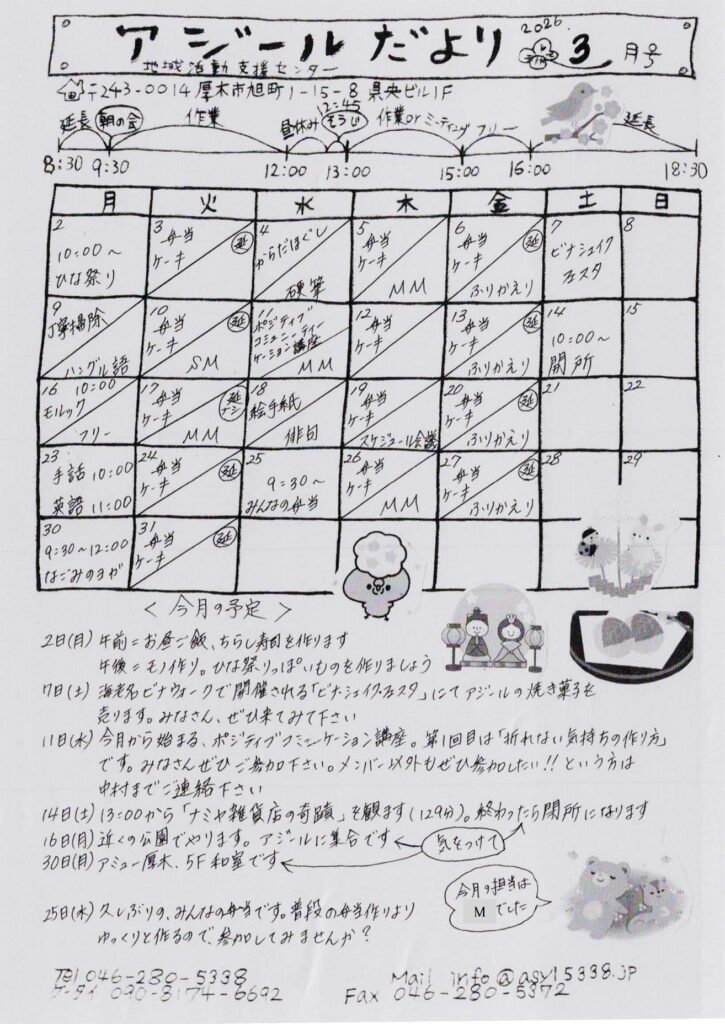 アジールだより 2026. 3月号
地域活動支援センター
〒243-0014 厚木市旭町1-15-8 県央ビル1F
延長 朝の会 作業 昼休み 12:45 そうじ 作業orミーティング フリー 延長
8:30 9:30 12:00 13:00 15:00 16:00 18:30
月 火 水 木 金 土 日
2 10:00〜 ひな祭り
3 弁当 ケーキ 延
4 からだほぐし 硬筆
5 弁当 ケーキ MM
6 弁当 ケーキ 延 ふりかえり
7 ビナシェイク フェスタ
8
9 丁寧掃除 ハングル語
10 弁当 ケーキ 延 SM
11 ポジティブ コミュニーティー ケーション講座 MM
12 弁当 ケーキ
13 弁当 ケーキ 延 ふりかえり
14 10:00〜 開所
15
16 10:00 モルック フリー
17 弁当 ケーキ 延ナシ MM
18 絵手紙 俳句
19 弁当 ケーキ スケジュール会議
20 弁当 ケーキ 延 ふりかえり
21
22
23 手話 10:00 英語 11:00
24 弁当 ケーキ 延
25 9:30〜 みんなの弁当
26 弁当 ケーキ MM
27 弁当 ケーキ 延 ふりかえり
28
29
30 9:30〜12:00 なごみのヨガ
31 弁当 ケーキ 延
＜今月の予定＞
2日(月) 午前=お昼ご飯、ちらし寿司を作ります
午後=モノ作り。ひな祭りっぽいものを作りましょう
7日(土) 海老名ビナウォークで開催される「ビナシェイクフェスタ」にてアジールの焼き菓子を
売ります。みなさん、ぜひ来てみて下さい
11日(水) 今月から始まる、ポジティブコミュニケーション講座。第1回目は「折れない気持ちの作り方」
です。みなさんぜひご参加下さい。メンバー以外もぜひ参加したい!!という方は
中村までご連絡下さい
14日(土) 13:00から「ナミヤ雑貨店の奇蹟」を観ます(129分)。終わったら閉所になります
16日(月) 近くの公園でやります。アジールに集合です
気をつけて
30日(月) アミュー厚木、5F和室です
今月の担当は
Mでした
25日(水) 久しぶりの、みんなの弁当です。普段の弁当作りより
ゆっくりと作るので、参加してみませんか?
Tel 046-280-5338 Mail info@asyl5338.jp
ケータイ 090-8174-6692 Fax 046-280-5372